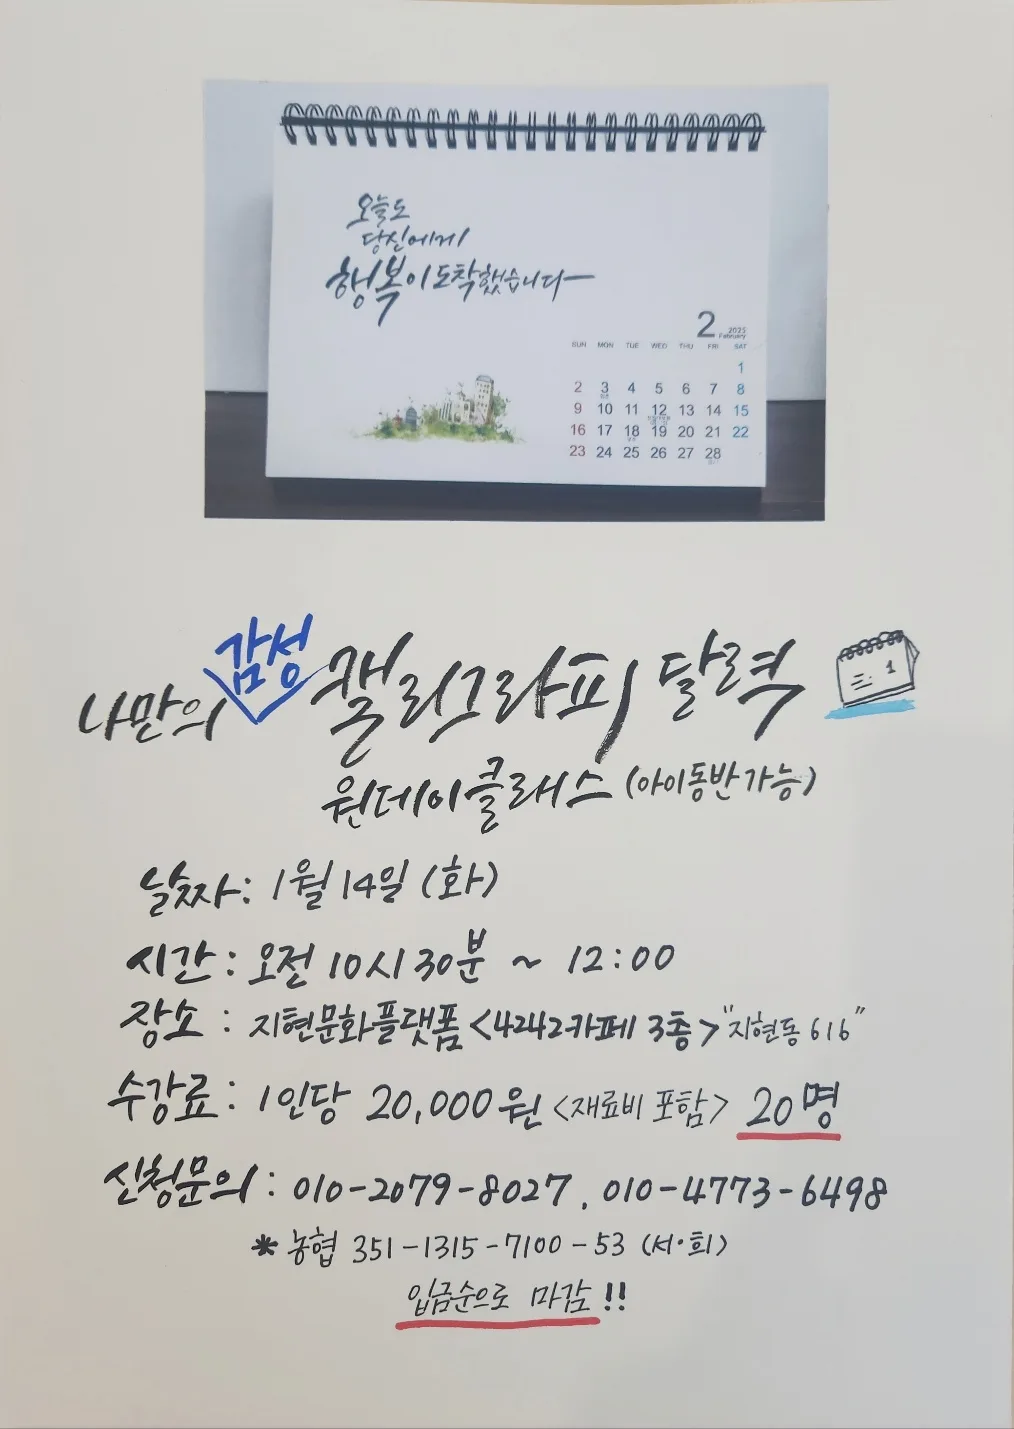 오늘도
당신에게
행복이 도착했습니다
2 2025 February
SUN MON TUE WED THU FRI SAT
1
2 3 4 5 6 7 8
9 10 11 12 13 14 15
16 17 18 19 20 21 22
23 24 25 26 27 28
나만의 감성 캘리그라피 달력
1
원데이클래스 (아이동반가능)
날짜: 1월 14일 (화)
시간: 오전 10시 30분 ~ 12:00
장소: 지현문화플랫폼 <4242카페 3층> "지현동 616"
수강료: 1인당 20,000원 <재료비 포함> 20명
신청문의: 010-2079-8027, 010-4773-6498
* 농협 351-1315-7100-53 (서·희)
입금순으로 마감!!